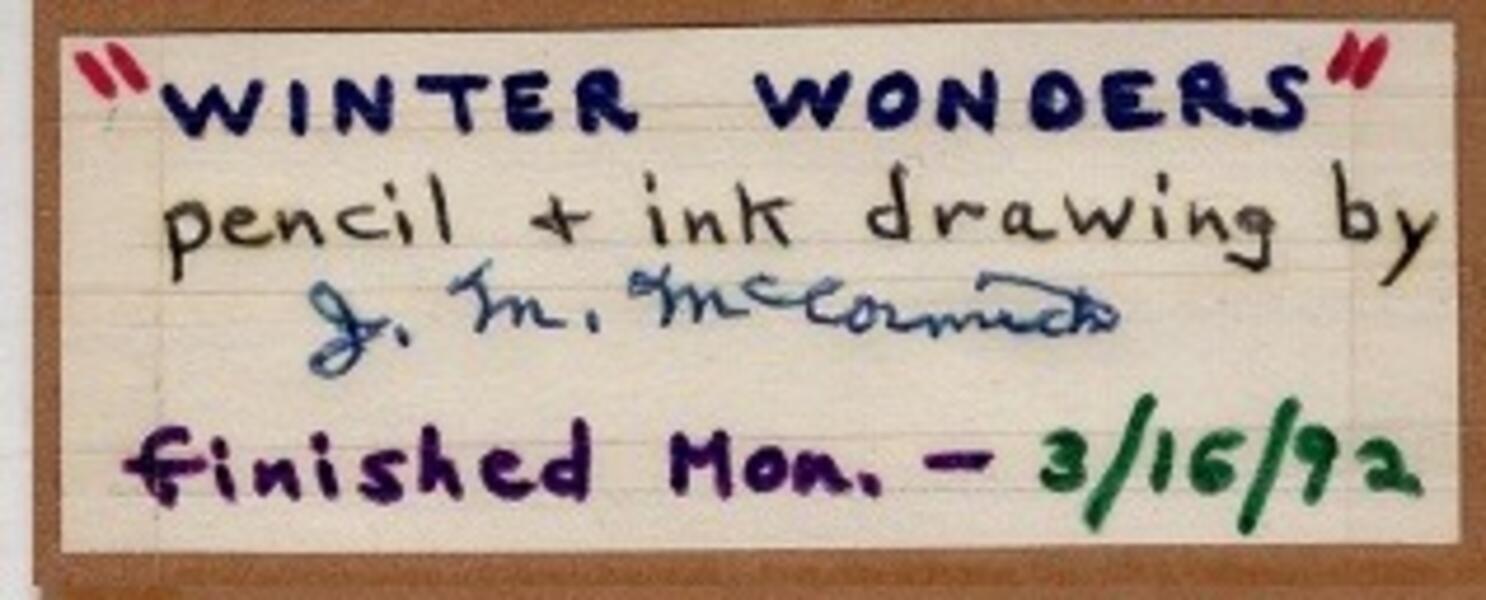 "WINTER WONDERS"
pencil + ink drawing by
J. M. McCormick
finished Mon. - 3/16/92